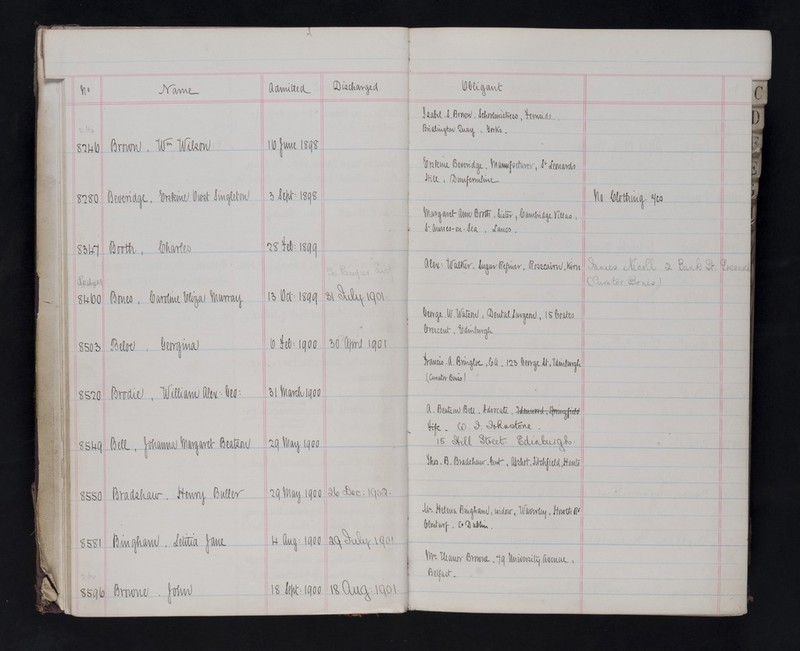 No Name Admitted Discharged Obligant
Isabel S. Brown, Schoolmistress,
8246 Brown, Wm Wilson 16 June 1898 Bridlington Quay, Yorks.
Erskine Beveridge, Manufacturer, St Leonards
Hill, Dunfermline
8280 Beveridge, Erskine Singleton 3 Sept: 1898 No Clothing %o
Margaret Ann Booth, Sister, Cambridge Villas,
St Annes-on-Sea, Lancs.
8347 Booth, Charles 28 Feb: 1899
Alex: Walker, Sugar Refiner, Greenock
8400 Bones, Caroline Eliza Murray 13 Oct: 1899 31 July 1901
(Curator Bonis)
George W. Watson, Dental Surgeon, 15 Coates
Crescent, Edinburgh
8503 Beloe, Georgina 6 Feb: 1900 30 April 1901
Francis A. Bringloe, C.A., 123 George St. Edinburgh
(Curator Bonis)
8520 Brodie, William Alex: Geo: 31 March 1900
A. Beatson Bell, Advocate, Springfield
Fife. Johnstone
15 Hill Street Edinburgh
8549 Bell, Johanna Margaret Beatson 29 May 1900
Thos. B. Bradshaw, Hants
8550 Bradshaw, Henry Butler 29 May 1900 26 Dec: 1902
Mrs Helena Bingham, widow, Waverley, Howth Rd
Clontarf, Co Dublin.
8581 Bingham, Letitia Jane 4 Aug: 1900 29 July 1901
Mrs Eleanor Browne, 79 University Avenue,
Belfast
8596 Browne, John 18 Sept: 1900 18 Aug 1901
C
D